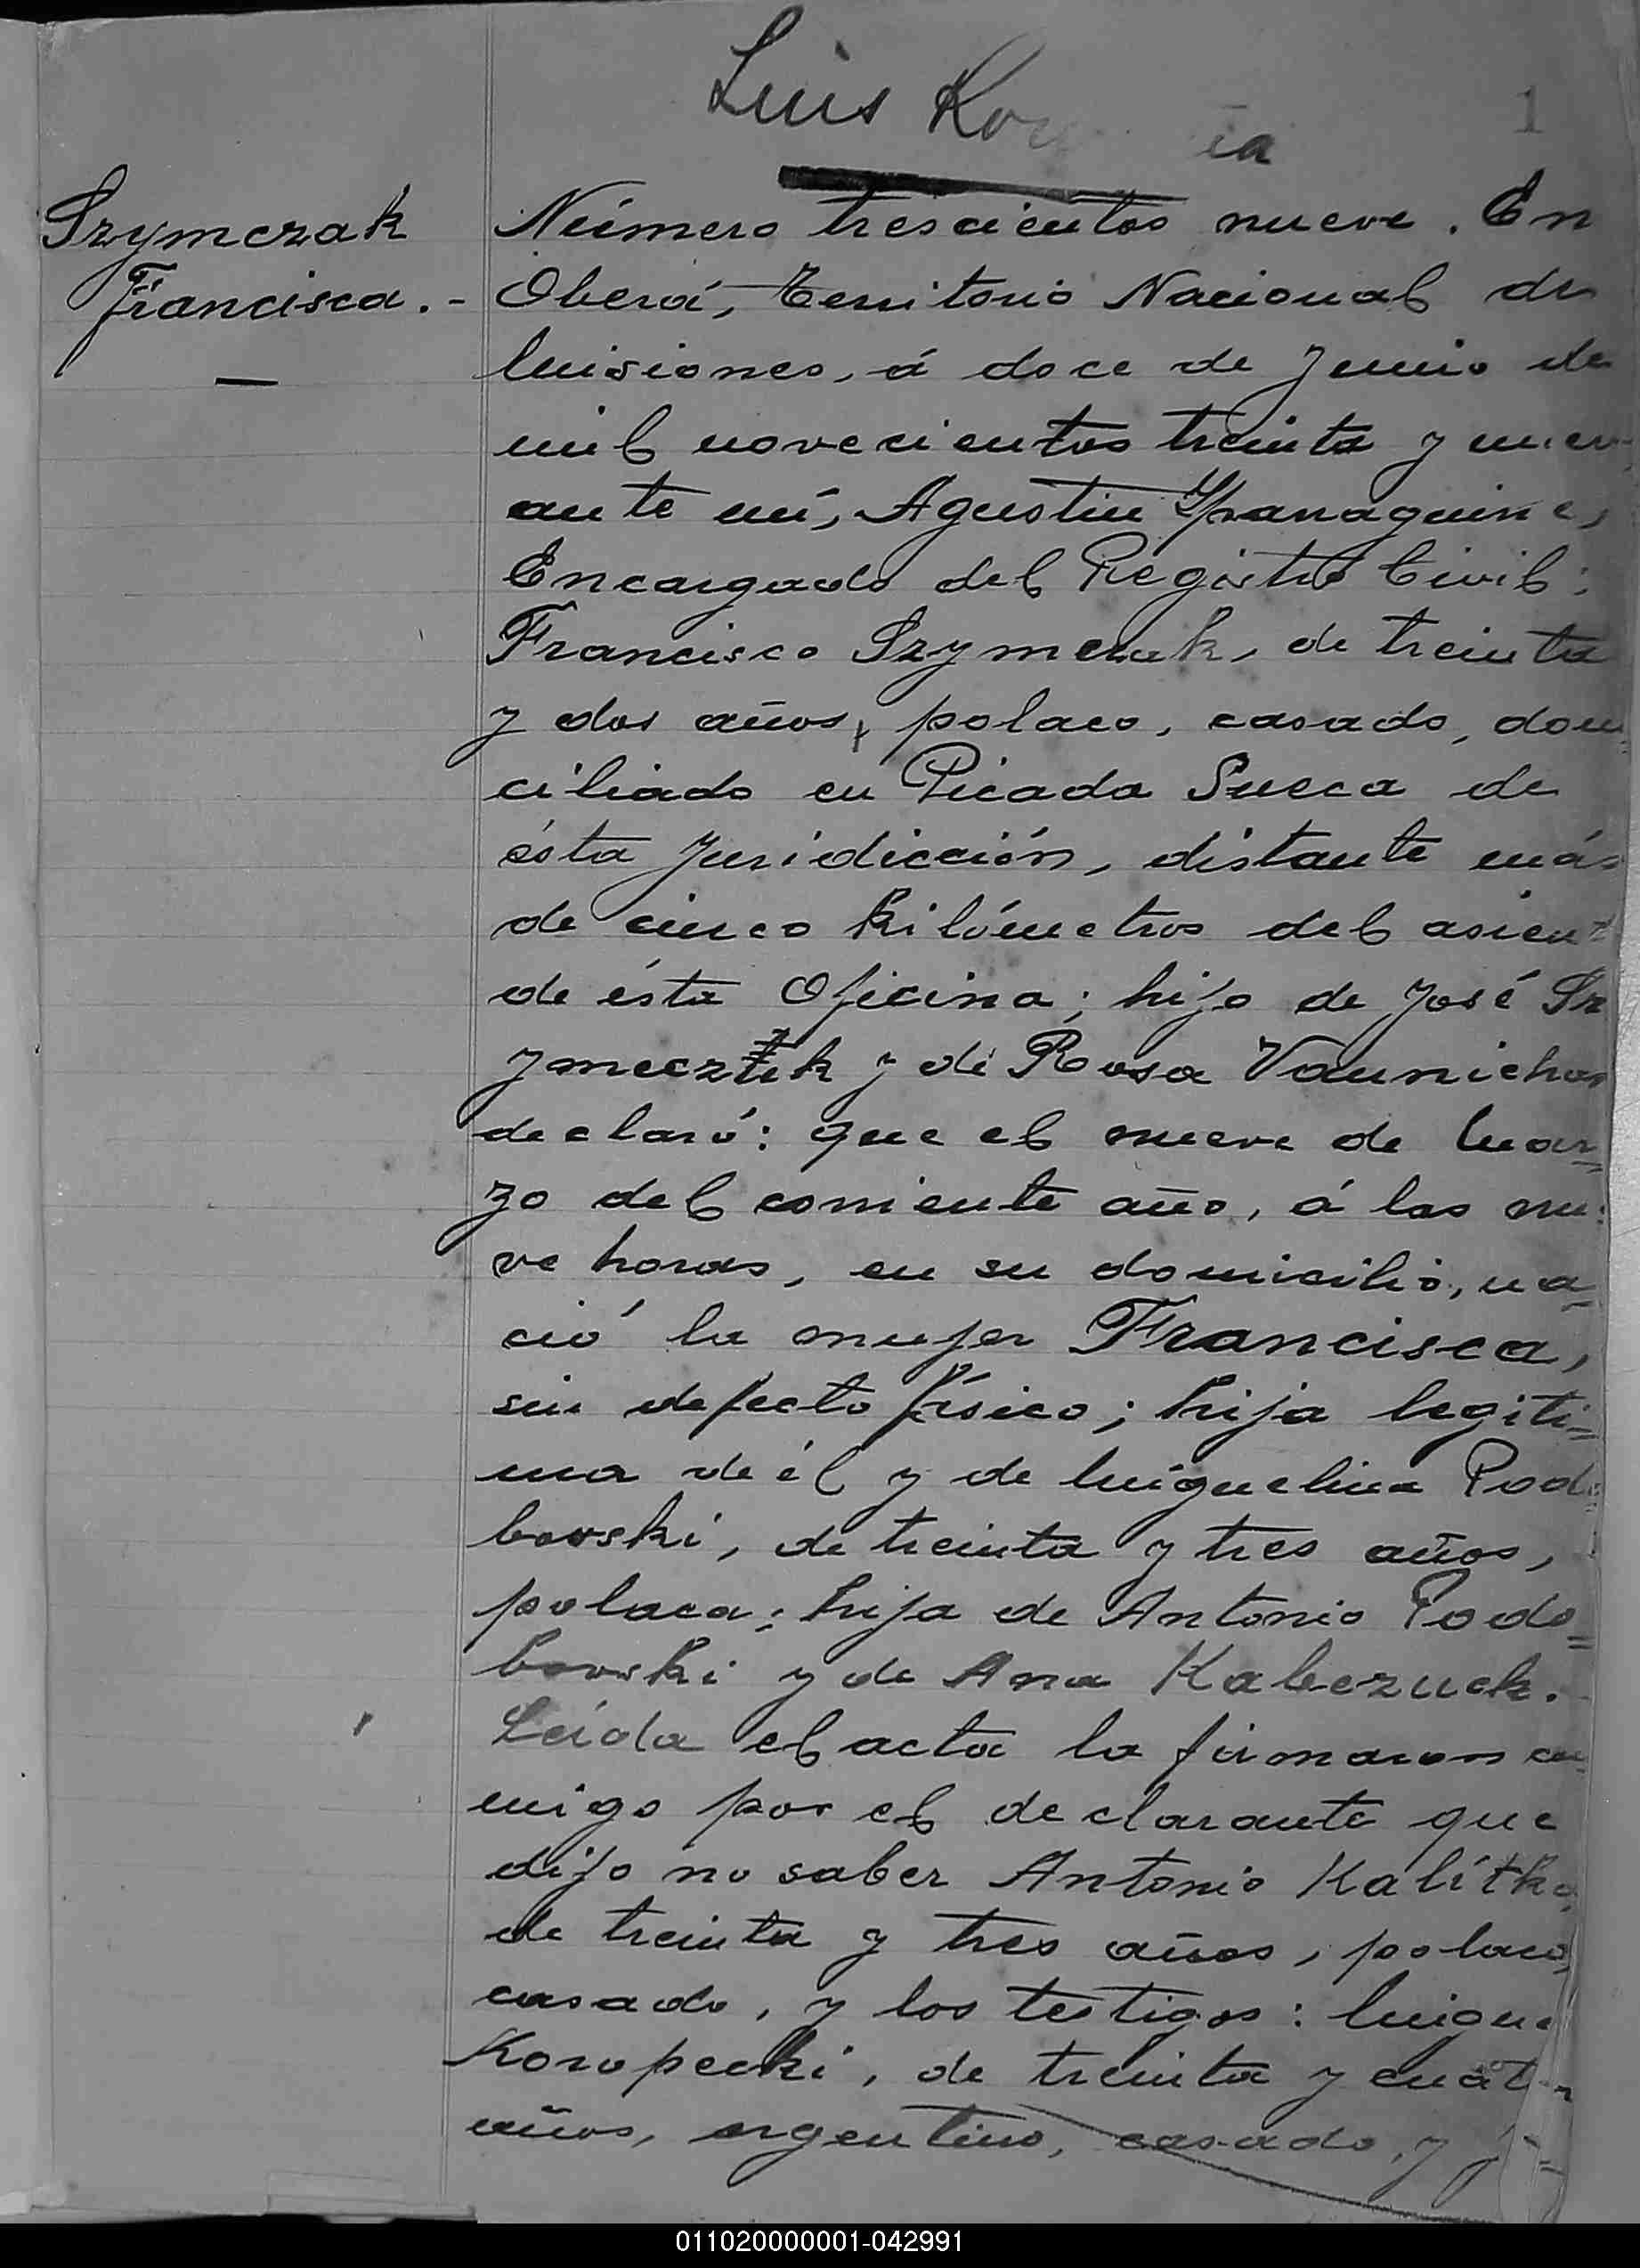 Luis
1
Szymczak
Francisca. -
Número trescientos nueve. En
Oberá, Territorio Nacional de
Misiones, á doce de Junio de
mil novecientos treinta y
ante mí, Agustin Yparraguirre,
Encargado del Registro Civil:
Francisco Szymczak, de treinta
y dos años, polaco, casado, domi=
ciliado en Picada Sueca de
ésta Jurisdicción, distante más
de cinco kilómetros del asient
de ésta Oficina; hijo de José Sz
y de Rosa
declaró: que el nueve de Mar=
zo del corriente año, á las nu
ve horas, en su domicilio, na=
ció la mujer Francisca,
sin defecto físico; hija legíti=
ma de él y de Miguelina Podo
bowski, de treinta y tres años,
polaca; hija de Antonio Podo=
bowski y de Ana Kaleczuck.
Leída el acta la firmaron con=
migo por el declarante que
dijo no saber Antonio Kalítko
de treinta y tres años, polaco,
casado, y los testigos: Migue
Koropecki, de treinta y cuatro
años, argentino, casado, y
011020000001-042991